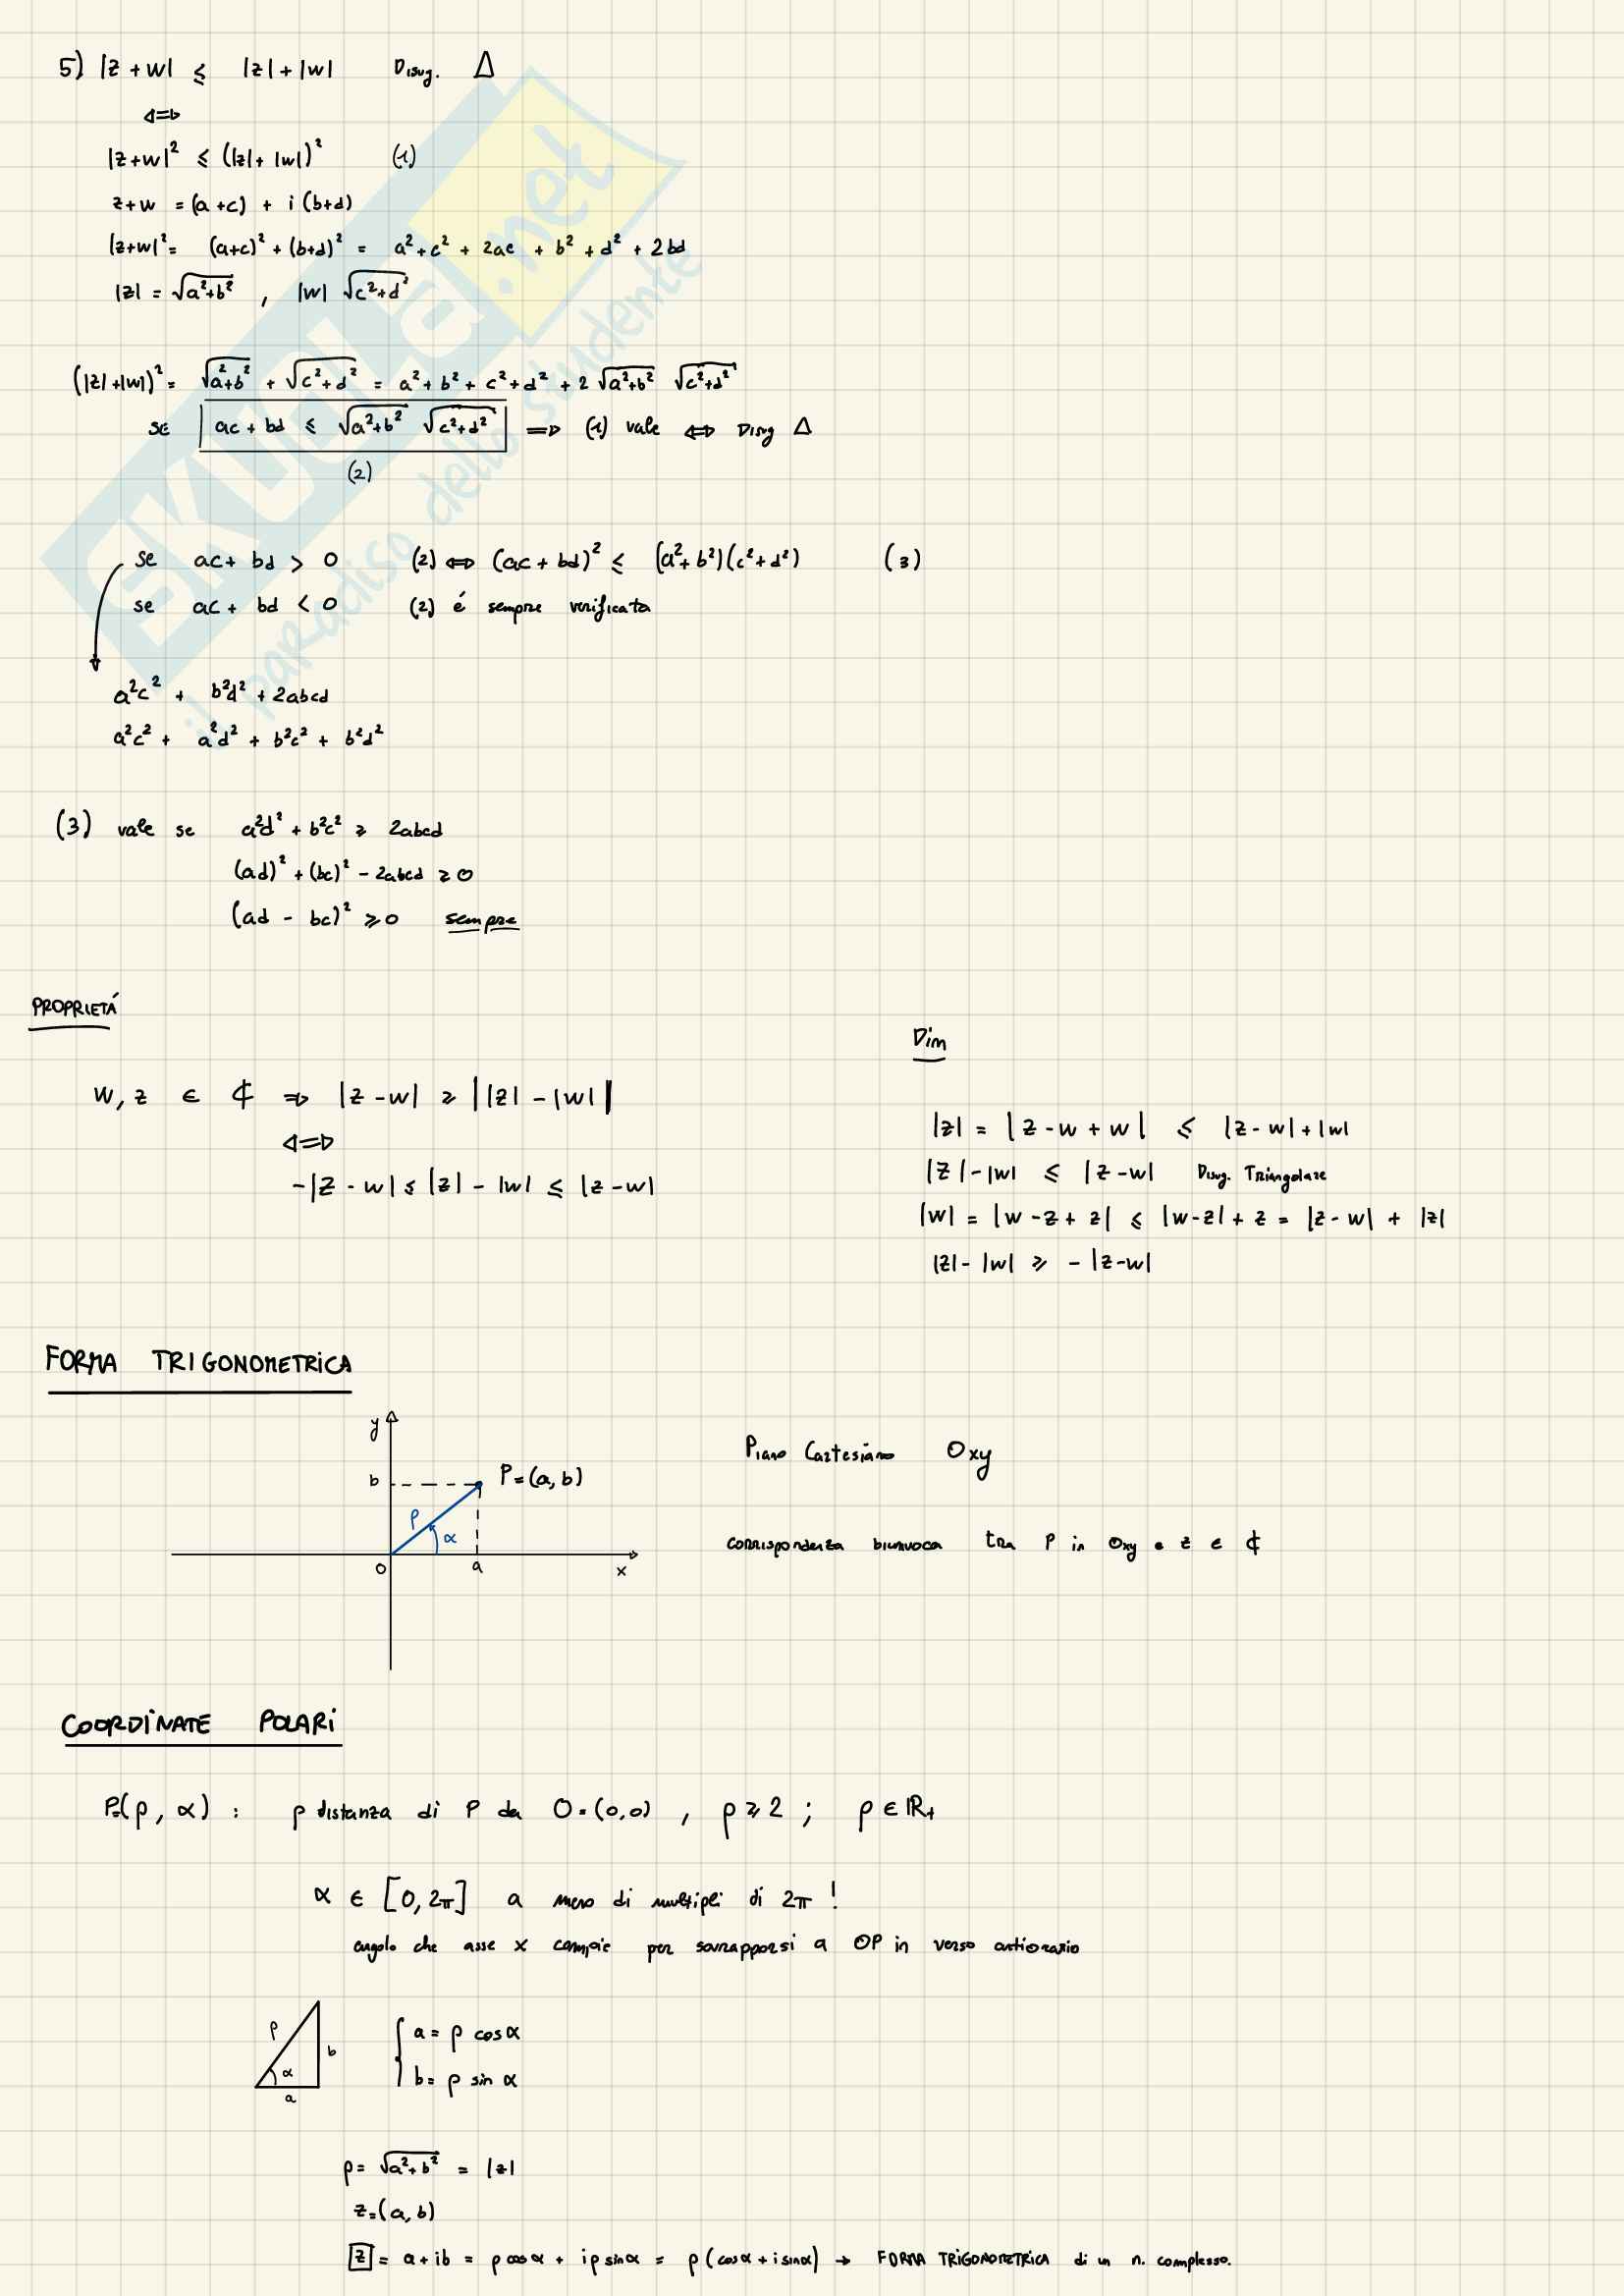 5) |z + w| ≤ |z| + |w| Disug. Δ
⇔
|z+w|² ≤ (|z| + |w|)² (1)
z+w = (a+c) + i (b+d)
|z+w|² = (a+c)² + (b+d)² = a² + c² + 2ac + b² + d² + 2bd
|z| = √a²+b² , |w| √c²+d²
(|z|+|w|)² = √a²+b² + √c²+d² = a² + b² + c² + d² + 2 √a²+b² √c²+d²
se ac + bd ≤ √a²+b² √c²+d² ⇒ (1) vale ⇔ Disug Δ
(2)
se ac + bd > 0 (2) ⇔ (ac + bd)² ≤ (a²+b²)(c²+d²) (3)
se ac + bd < 0 (2) é sempre verificata
a²c² + b²d² + 2abcd
a²c² + a²d² + b²c² + b²d²
(3) vale se a²d² + b²c² ≥ 2abcd
(ad)² + (bc)² - 2abcd ≥ 0
(ad - bc)² ≥ 0 sempre
PROPRIETÁ
w, z ∈ ℂ ⇒ |z - w| ≥ ||z| - |w||
⇔
-|z - w| ≤ |z| - |w| ≤ |z - w|
Dim
|z| = |z - w + w| ≤ |z - w| + |w|
|z| - |w| ≤ |z - w| Disug. Triangolare
|w| = |w - z + z| ≤ |w-z| + z = |z - w| + |z|
|z| - |w| ≥ - |z-w|
FORMA TRIGONOMETRICA
y
b P=(a, b)
ρ α
0 a x
Piano Cartesiano Oxy
corrispondenza biunivoca tra P in Oxy e z ∈ ℂ
COORDINATE POLARI
P=(ρ, α) : ρ distanza di P da O=(0,0) , ρ ≥ 2 ; ρ ∈ ℝ+
α ∈ [0, 2π] a meno di multipli di 2π !
angolo che asse x compie per sovrapporsi a OP in verso antiorario
ρ α b a
a = ρ cos α
b = ρ sin α
ρ = √a²+b² = |z|
z = (a, b)
z = a + ib = ρ cos α + i ρ sin α = ρ (cos α + i sin α) → FORMA TRIGONOMETRICA di un n. complesso.
SKUOLA.net
il paradiso dello studente